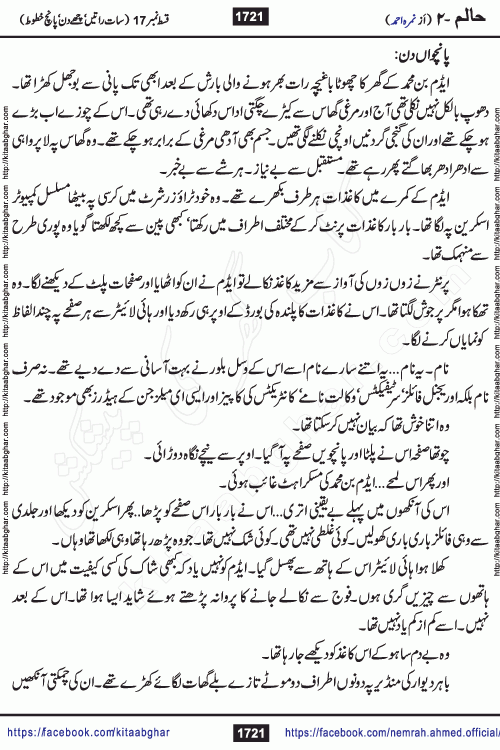 حالم -۲ (از نمرہ احمد) 1721 قسط نمبر 17 (سات راتیں، چھے دن، پانچ خطوط)
پانچواں دن:
ایڈم بن محمد کے گھر کا چھوٹا باغیچہ رات بھر ہونے والی بارش کے بعد ابھی تک پانی سے بوجھل کھڑا تھا۔
دھوپ بالکل نہیں نکلی تھی آج اور مرغی گھاس سے کیڑے چگتی اداس دکھائی دے رہی تھی۔ اس کے چوزے اب بڑے
ہو چکے تھے اور ان کی گنجی گردنیں اونچی نکلنے لگی تھیں۔ جسم بھی آدھی مرغی کے برابر ہو چکے تھے۔ وہ گھاس پہ لا پرواہی
سے ادھر ادھر بھاگتے پھر رہے تھے۔ مستقبل سے بے نیاز۔ ہر شے سے بے خبر۔
ایڈم کے کمرے میں کاغذات ہر طرف بکھرے تھے۔ وہ خود ٹراؤزر شرٹ میں کرسی پہ بیٹھا مسلسل کمپیوٹر
اسکرین پہ لگا تھا۔ بار بار کاغذات پرنٹ کر کے مختلف اطراف میں رکھتا، کبھی پین سے کچھ لکھتا گویا وہ پوری طرح
سے منہمک تھا۔
پرنٹر نے زوں زوں کی آواز سے مزید کاغذ نکالے تو ایڈم نے ان کو اٹھایا اور صفحات پلٹ کے دیکھنے لگا۔ وہ
تھکا ہوا مگر پرجوش لگتا تھا۔ اس نے کاغذات کا پلندہ کی بورڈ کے اوپر ہی رکھ دیا اور ہائی لائیٹر سے ہر صفحے پہ چند الفاظ
کو نمایاں کرنے لگا۔
نام۔ یہ نام... یہ اتنے سارے نام اسے اس کے وسل بلور نے بہت آسانی سے دے دیے تھے۔ نہ صرف
نام بلکہ اوریجنل فائلز، سرٹیفکیٹس، وکالت نامے، کانٹریکٹس کی کاپیز اور ایسی ای میلز جن کے ہیڈرز بھی موجود تھے۔
وہ اتنا خوش تھا کہ بیان نہیں کر سکتا تھا۔
چوتھا صفحہ اس نے پلٹا اور پانچویں صفحے پہ آ گیا۔ اوپر سے نیچے نگاہ دوڑائی۔
اور پھر اس لمحے... ایڈم بن محمد کی مسکراہٹ غائب ہوئی۔
اس کی آنکھوں میں پہلے بے یقینی اتری... اس نے بار بار اس صفحے کو پڑھا.. پھر اسکرین کو دیکھا اور جلدی
سے وہی فائلز باری باری کھولیں۔ کوئی غلطی نہیں تھی۔ کوئی شک نہیں تھا۔ جو وہ پڑھ رہا تھا وہی لکھا تھا وہاں۔
کھلا ہوا ہائی لائیٹر اس کے ہاتھ سے پھسل گیا۔ ایڈم کو نہیں یاد کہ کبھی شاک کی کسی کیفیت میں اس کے
ہاتھوں سے چیزیں گری ہوں۔ فوج سے نکالے جانے کا پروانہ پڑھتے ہوئے شاید ایسا ہوا تھا۔ اس کے بعد
نہیں۔ اسے کم از کم یاد نہیں تھا۔
وہ بے دم سا ہو کے اس کاغذ کو دیکھے جا رہا تھا۔
باہر دیوار کی منڈیر پہ دونوں اطراف دو موٹے تازے بلے گھات لگائے کھڑے تھے۔ ان کی چمکتی آنکھیں
https://facebook.com/kitaabghar 1721 https://facebook.com/nemrah.ahmed.official/
http://kitaabghar.com http://kitaabghar.com http://kitaabghar.com http://kitaabghar.com http://kitaabghar.com